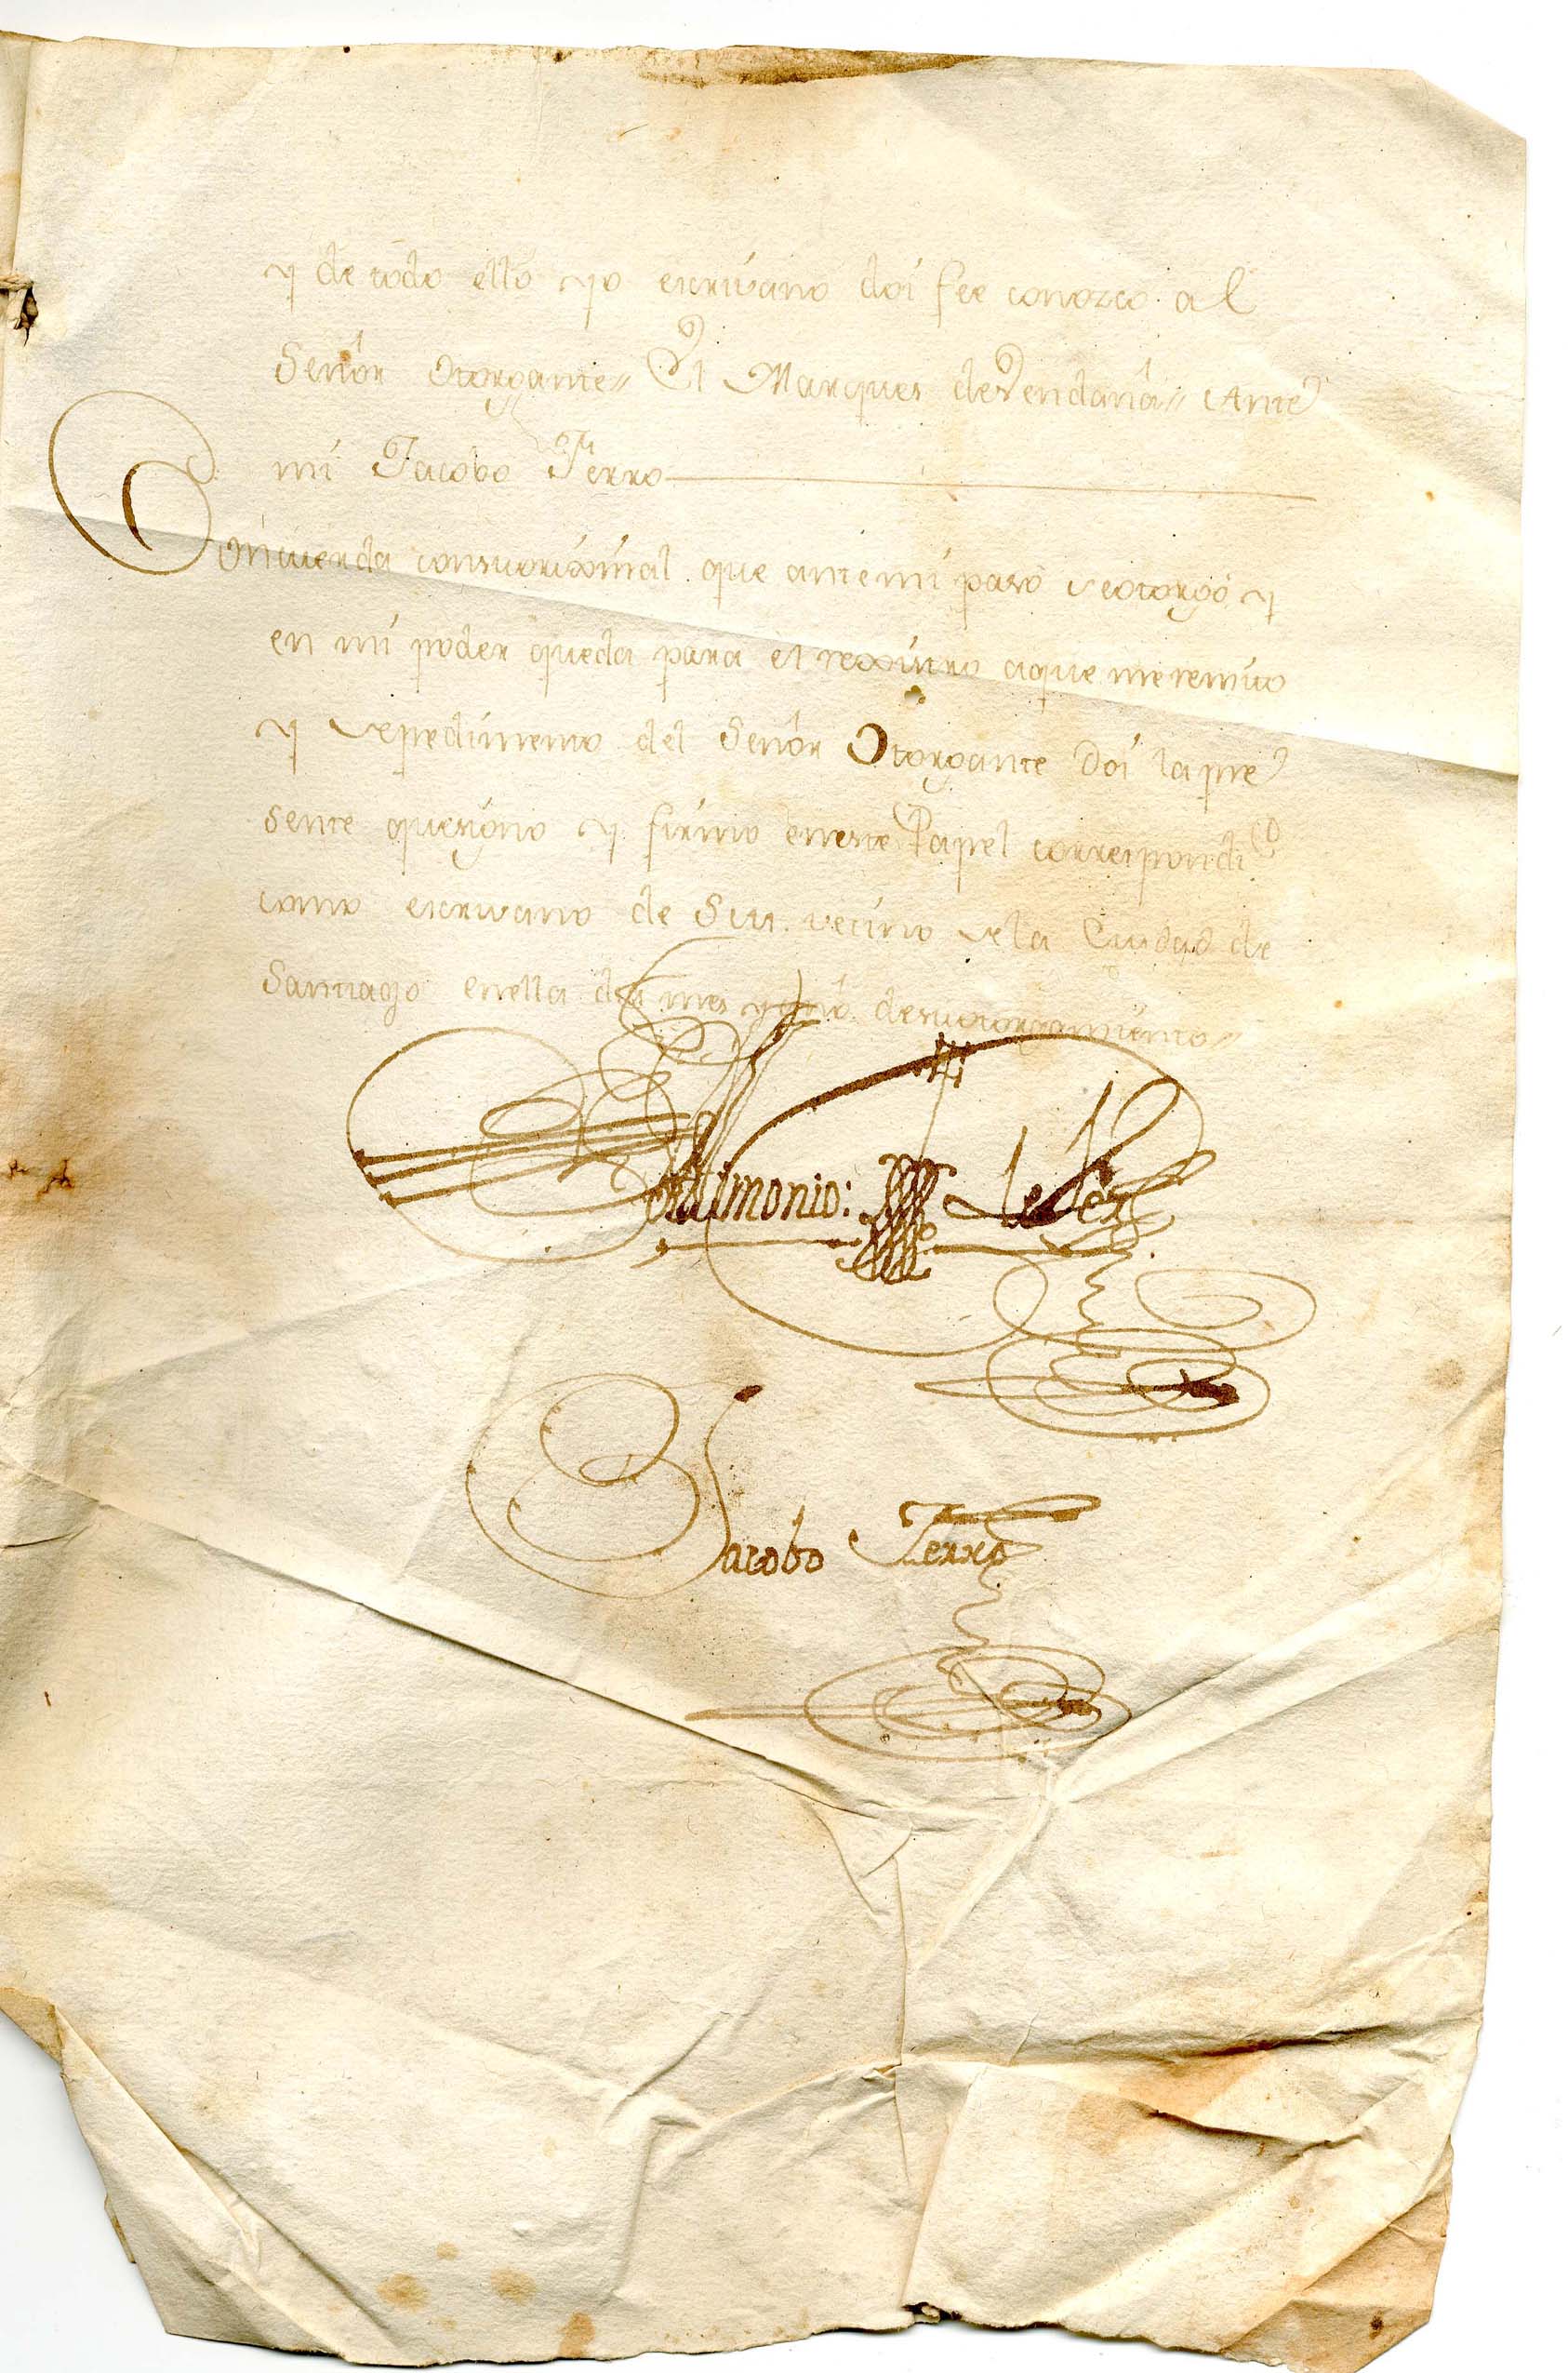 y de todo ello yo escrivano doi fee conozco al
Señor Otorgante // El Marques de Vendaña // Ante
mi Jacobo Ferro
Concuerda con su orixinal que ante mi pasó se otorgó y
en mi poder queda para el rexistro a que me remito
y de pedimento del Señor Otorgante Doi la pre
sente que signo y firmo en este Papel correspondte
como escrivano de S.M. vecino de la Ciudad de
Santiago en ella dia mes y año de su otorgamiento //
En testimonio: de Verd
Jacobo Ferro